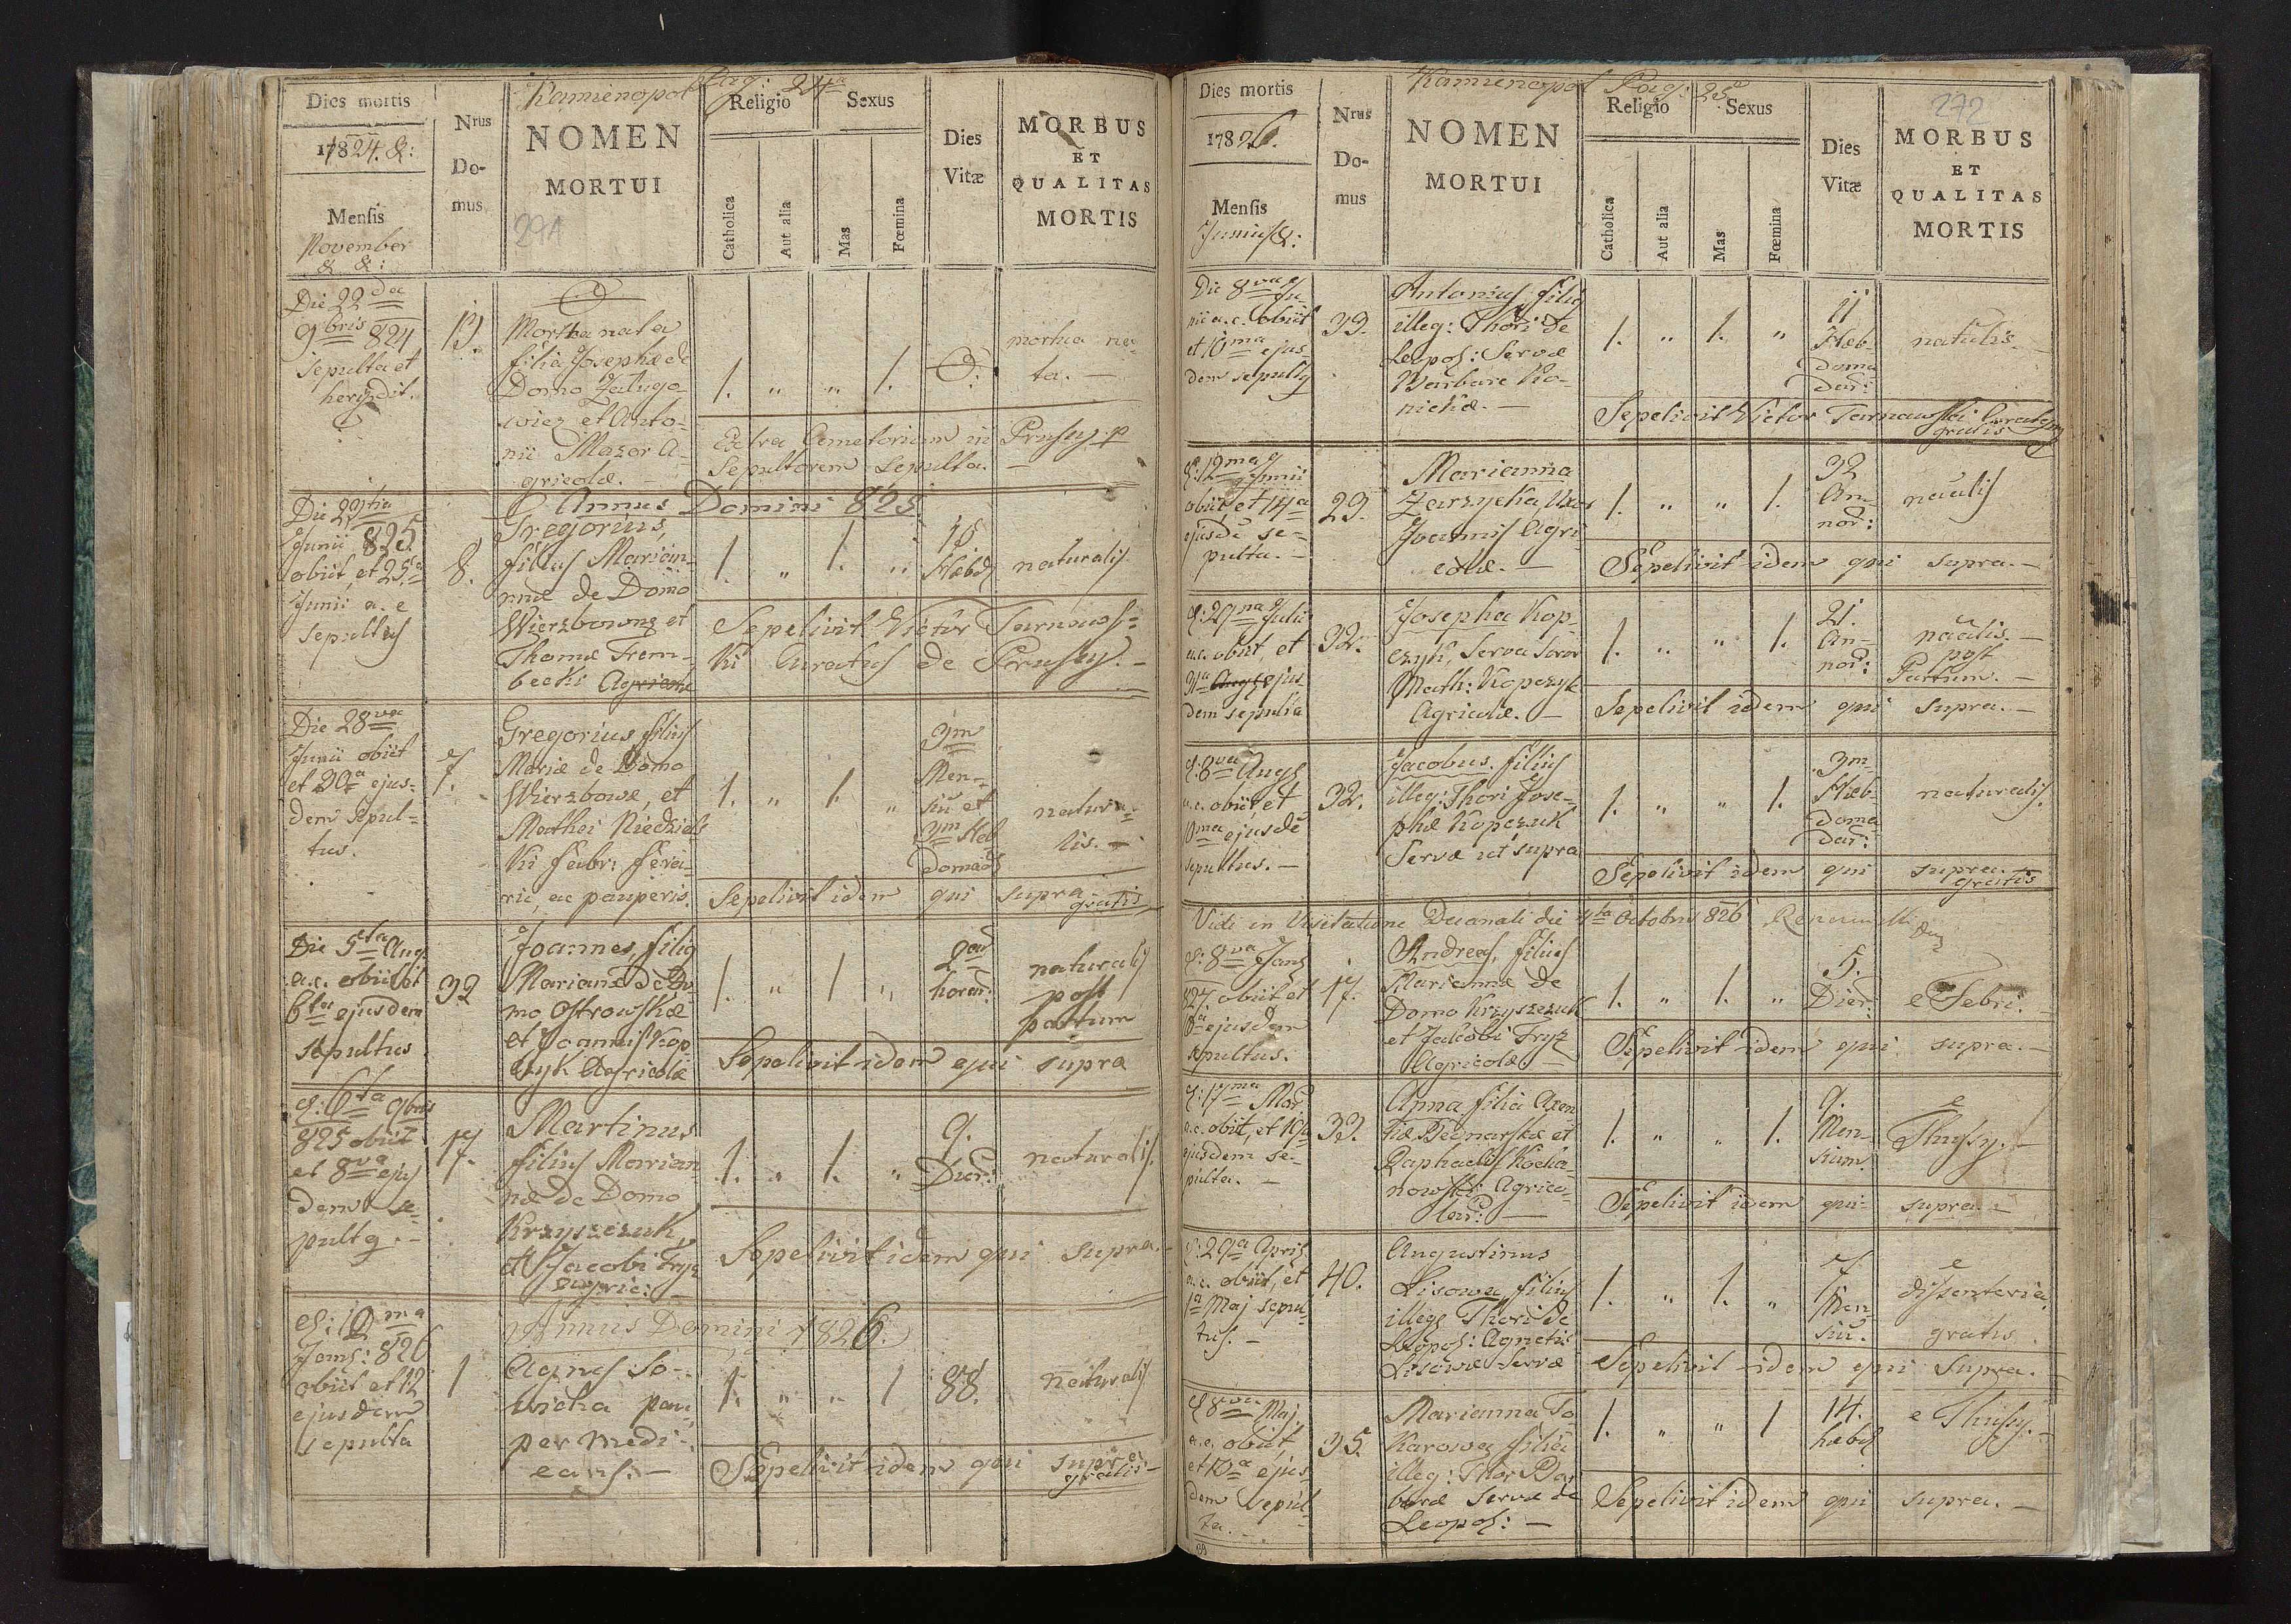 Kamienopol Pag: 24ta
Dies mortis
1824. &:
Mensis
November
& &:
Nrus
Do-
mus
NOMEN
MORTUI
271
Religio
Catholica
Aut alia
Sexus
Mas
Fœmina
Dies
Vitæ
MORBUS
ET
QUALITAS
MORTIS
Die 22da
9bris 824
sepulta et
13.
Martha nata
filia Josephæ de
Domo
wicz et Anto-
nii Mazor A-
gricolæ. —
1. " " 1.
mortua na-
ta. —
Extra Cemetorium in Prusy p
Sepultorem sepulta. —
Annus Domini 825.
Die
Junii 825
obiit et 25ta
Junii a. c
sepultus
8.
Gregorius,
filius Marian-
næ de Domo
Wierzbowna et
Thomæ Trem-
becki Agricolæ
1. " 1. "
18
Hebd
naturalis
Sepelivit Victor Tarnaws=
ki Curatus de Prusy. —
Die 28va
Junii obiit
et 30a ejus-
dem sepul=
tus.
7.
Gregorius filius
Mariæ de Domo
Wierzbowa, et
Mathei Niedziel
ki fabri fera-
rii, ac pauperis.
1. " 1. "
3m
Men-
siu et
3m Heb
domad
natura-
lis. —
Sepelivit idem qui supra
gratis
Die 5ta Aug
a.c. obiit et
6ta ejusdem
sepultus
32
Joannes, filig
Mariannæ de Do-
mo Ostrowskæ
et Joannis Kop
czyk Agricolæ
1. " 1 "
2ar
horar:
naturalis
post
partum
Sepelivit idem qui supra
d: 6ta 9bris
825 obiit
et 8va ejus
dem se-
pultg. —
17.
Martinus
filius Marian
næ de Domo
Krzyszczuk,
et Jacobi Fryz
agric: —
1. " 1. "
9.
Dier:
naturalis.
Sepelivit idem qui supra. —
Annus Domini 1826.
d: 10ma
Janr: 826
obiit et 12
ejusdem
sepulta
1
Agnes So-
wicha pau-
per medi-
cans. —
1. " " 1
88.
naturalis
Sepelivit idem qui supra
gratis —
Kamienopol Pag: 25a
272
Dies mortis
1826.
Mensis
Junius &:
Nrus
Do-
mus
NOMEN
MORTUI
Religio
Catholica
Aut alia
Sexus
Mas
Fœmina
Dies
Vitæ
MORBUS
ET
QUALITAS
MORTIS
Die 8va Ju-
nii a.c. obiit
et 10ma ejus-
dem sepultg
33.
Antonius filig
illeg: Thori de
Leopol: Servæ
Barbaræ Ko-
nickæ. —
1. " 1. "
11
Heb-
doma
dar:
natulis. —
Sepelivit Victor Tarnawski Curatus
gratis
d: 12ma Junii
obiit, et 14a
ejusdē se-
pulta. —
29.
Marianna
Zarzycka Uxor
Joannis Agri-
colæ. —
1. " " 1.
32
An-
nor:
naālis
Sepelivit idem qui supra. —
d: 29na Julii
a.c. obiit, et
31a Aug ejus
dem sepulta
32.
Josepha Kop-
czyk, Serva Soror
Math: Kopczyk
Agricolæ. —
1. " " 1.
21.
An-
nor:
naālis. —
post
Partum. —
Sepelivit idem qui supra. —
d: 8va Aug
a.c. obiit et
10ma ejusdē
sepultus. —
32.
Jacobus, filius
illeg: Thori Jose-
phæ Kopczuk
Servæ ut supra
1. " " 1.
3m
Heb-
doma
dar:
naturalis.
Sepelivit idem qui supra.
gratis
Vidi in Visitatione Decanali die 4ta Octobris 826
d: 8va Jan
827. obiit et
10a ejusdem
sepultus.
17.
Andreas, filius
Mariannæ de
Domo Krzyszczuk
et Jacobi Fryz
Agricolæ —
1. " 1. "
5.
Dier:
e Febri. —
Sepelivit idem qui supra. —
d: 17ma Mar
a.c. obiit, et 19a
ejusdem se-
pulta. —
33.
Anna filia Axen
tiæ Bednarskæ et
Raphaelis Kocha-
nowski Agrico-
lar: —
1. " " 1.
9.
Men-
sium.
e
Thusy. —
Sepelivit idem qui supra. —
d: 29a Apris
a.c. obiit, et
1a Maj sepul-
tus. —
40.
Augustinus
Lisowa, filius
illeg Thori de
Leopol: Agnetis
Lisowæ Servæ
1. " 1. "
7
Men
siu.
e
dissenteria.
gratis.
Sepelivit idem qui supra. —
d 8va Maj.
a.c. obiit,
et 10a ejus
dem sepul-
ta. —
35.
Marianna To-
karowa filia
illeg: Thor Bar
baræ Servæ de
Leopol: —
1. " " 1
14.
hebd
e Thusy. —
Sepelivit idem qui supra. —